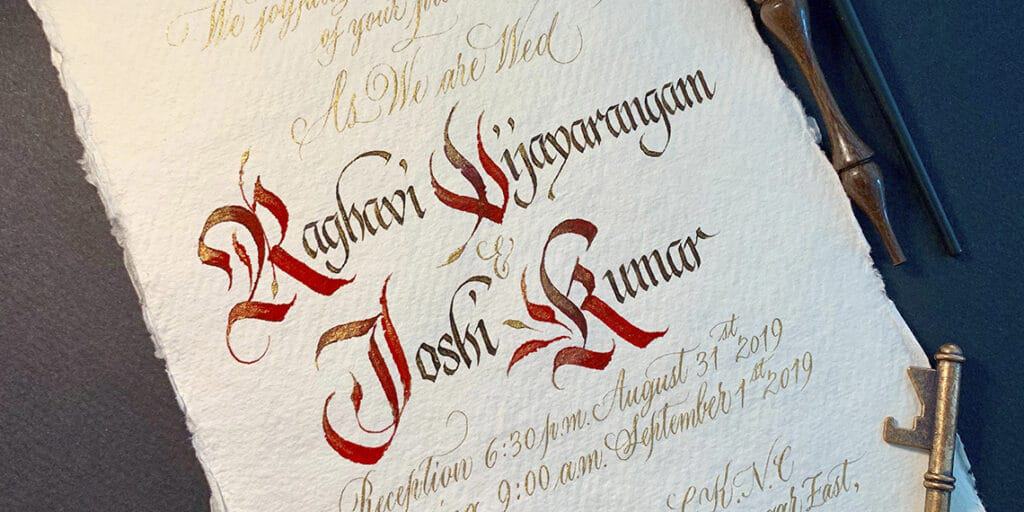 We joyfully
of your
As We are Wed
Raghavi Vijayarangam
&
Joshi Kumar
Reception 6:30 p.m. August 31st 2019
9:00 a.m. September 1st 2019
K.N.C
East,